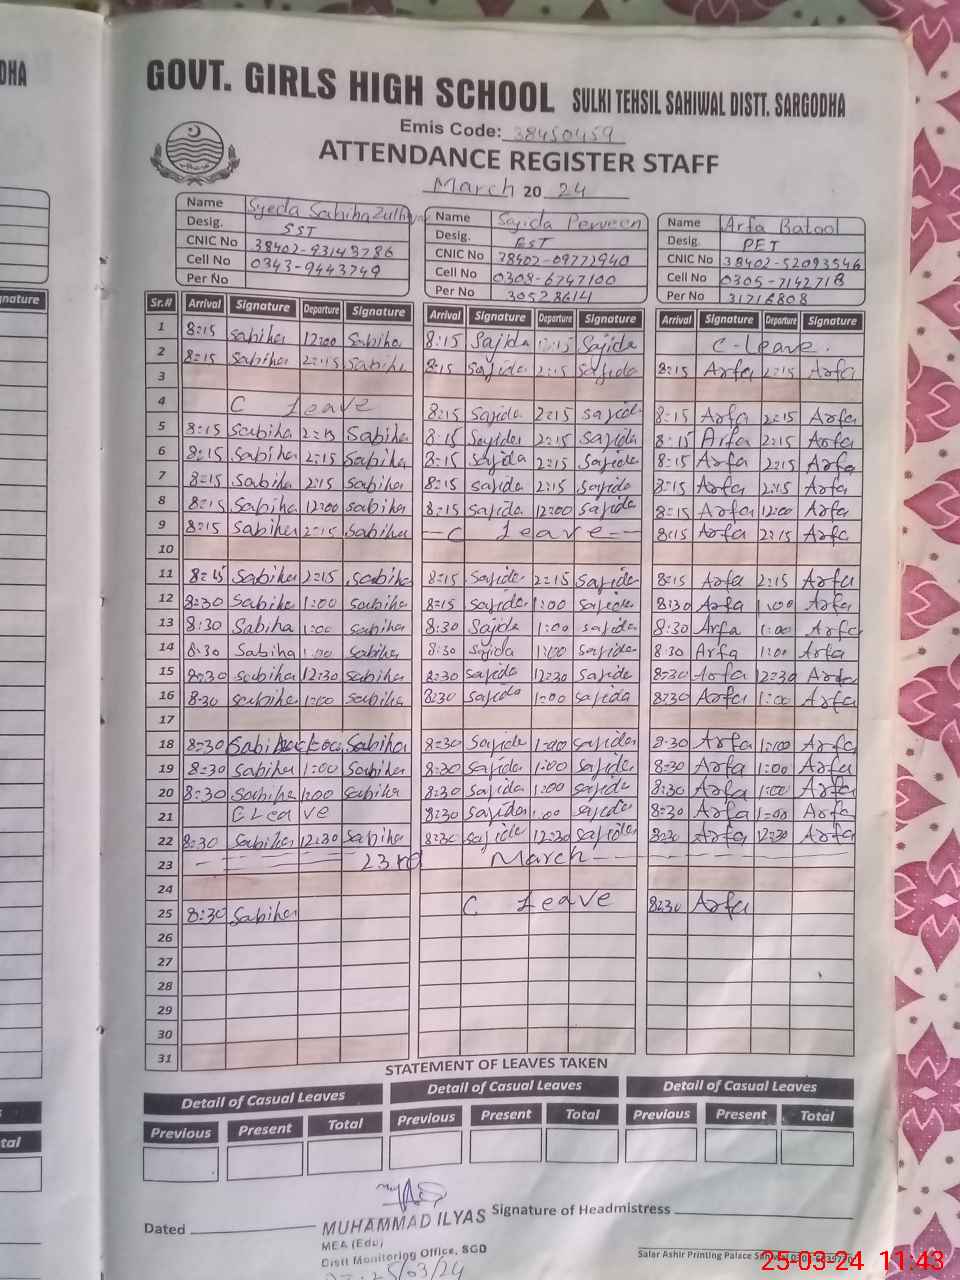 DHA
GOVT. GIRLS HIGH SCHOOL SULKI TEHSIL SAHIWAL DISTT. SARGODHA
Emis Code: 38450459
ATTENDANCE REGISTER STAFF
March 20 24
Name Syeda Sabiha Name Sajida Perveen Name Arfa Batool
Desig. SST Desig. EST Desig. PET
CNIC No 38402-93143786 CNIC No 38402-09772940 CNIC No 38402-52093546
Cell No 0343-9443749 Cell No 0308-6747100 Cell No 0305-7142718
Per No Per No 30528614 Per No 31716808
nature
Sr.# Arrival Signature Departure Signature Arrival Signature Departure Signature Arrival Signature Departure Signature
1 8:15 Sabiha 12:00 Sabiha 8:15 Sajida Sajida C-Leave.
2 8:15 Sabiha 2:15 Sabiha 8:15 Sajida 2:15 Sajida 8:15 Arfa 2:15 Arfa
3
4 C Leave 8:15 Sajida 2:15 Sajida 8:15 Arfa 2:15 Arfa
5 8:15 Sabiha 2:15 Sabiha 8:15 Sajida 2:15 Sajida 8:15 Arfa 2:15 Arfa
6 8:15 Sabiha 2:15 Sabiha 8:15 Sajida 2:15 Sajida 8:15 Arfa 2:15 Arfa
7 8:15 Sabiha 2:15 Sabiha 8:15 Sajida 2:15 Sajida 8:15 Arfa 2:15 Arfa
8 8:15 Sabiha 12:00 Sabiha 8:15 Sajida 12:00 Sajida 8:15 Arfa 12:00 Arfa
9 8:15 Sabiha 2:15 Sabiha - C Leave - - 8:15 Arfa 2:15 Arfa
10
11 8:15 Sabiha 2:15 Sabiha 8:15 Sajida 2:15 Sajida 8:15 Arfa 2:15 Arfa
12 8:30 Sabiha 1:00 Sabiha 8:15 Sajida 1:00 Sajida 8:30 Arfa 1:00 Arfa
13 8:30 Sabiha 1:00 Sabiha 8:30 Sajida 1:00 Sajida 8:30 Arfa 1:00 Arfa
14 8:30 Sabiha 1:00 Sabiha 8:30 Sajida 1:00 Sajida 8:30 Arfa 1:00 Arfa
15 8:30 Sabiha 12:30 Sabiha 8:30 Sajida 12:30 Sajida 8:30 Arfa 12:30 Arfa
16 8:30 Sabiha 1:00 Sabiha 8:30 Sajida 1:00 Sajida 8:30 Arfa 1:00 Arfa
17
18 8:30 Sabiha Sabiha 8:30 Sajida 1:00 Sajida 8:30 Arfa 1:00 Arfa
19 8:30 Sabiha 1:00 Sabiha 8:30 Sajida 1:00 Sajida 8:30 Arfa 1:00 Arfa
20 8:30 Sabiha 1:00 Sabiha 8:30 Sajida 1:00 Sajida 8:30 Arfa 1:00 Arfa
21 C Leave 8:30 Sajida 1:00 Sajida 8:30 Arfa 1:00 Arfa
22 8:30 Sabiha 12:30 Sabiha 8:30 Sajida 12:30 Sajida 8:30 Arfa 12:30 Arfa
23 23rd March
24
25 8:30 Sabiha C Leave 8:30 Arfa
26
27
28
29
30
31
STATEMENT OF LEAVES TAKEN
Detail of Casual Leaves Detail of Casual Leaves Detail of Casual Leaves
tal Previous Present Total Previous Present Total Previous Present Total
Dated MUHAMMAD ILYAS Signature of Headmistress
MEA (Edu)
Distt Monitoring Office, SGD
25/03/24
Saler Ashir Printing Palace
25-03-24 11:43